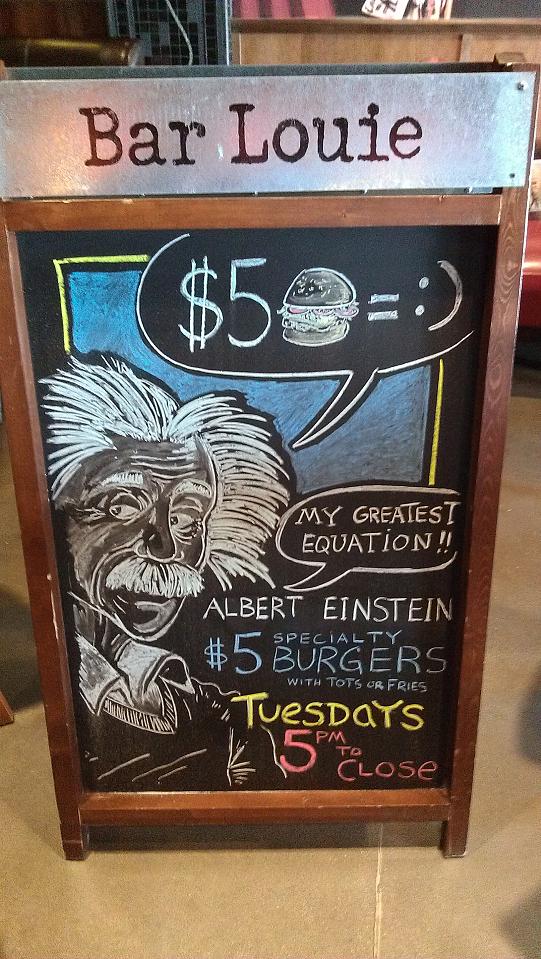 Bar Louie
$5 = :)
MY GREATEST
EQUATION!!
ALBERT EINSTEIN
$5 SPECIALTY
BURGERS
WITH TOTS OR FRIES
TUESDAYS
5PM
TO
CLOSE